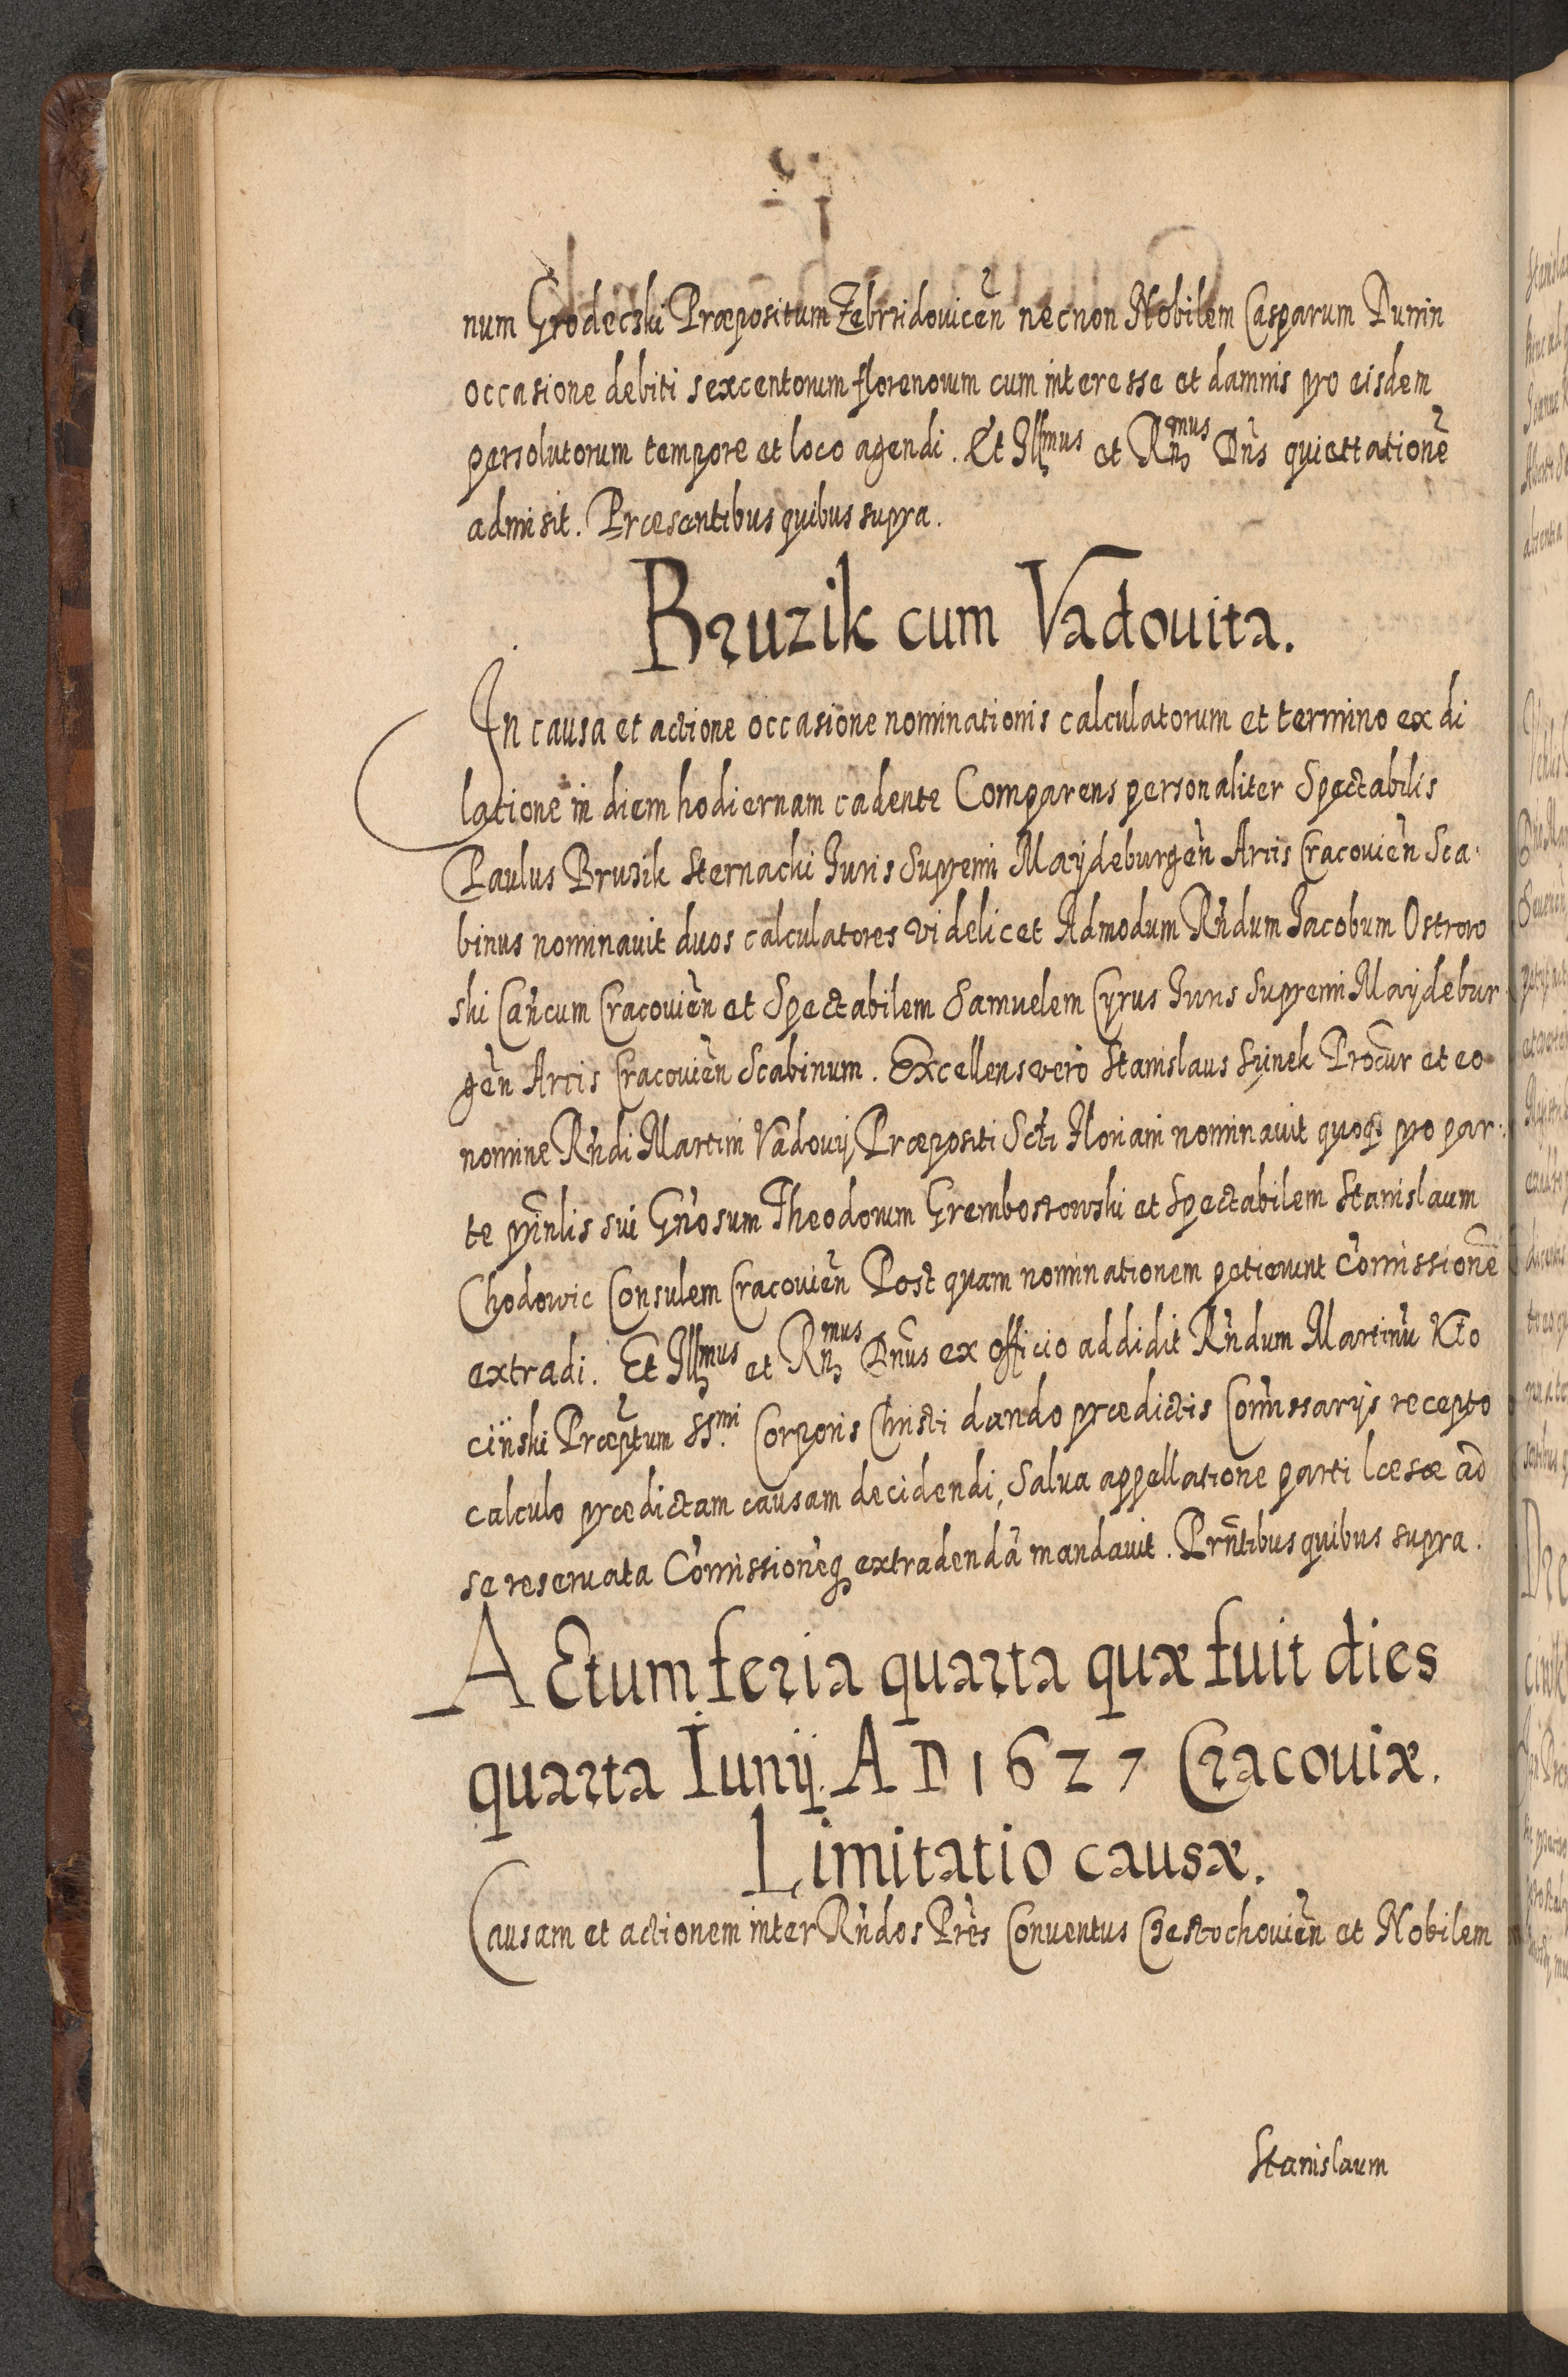 num Grodecski Præpositum Zebrzidovicen̄ necnon Nobilem Casparum Dunin
occasione debiti sexcentorum florenorum cum interesse et damnis pro eisdem
persolutorum tempore et loco agendi. Et Illmus et Rn̄mus Dn̄s quiettationē
admisit. Præsentibus quibus supra.
Bruzik cum Vadovita.
In causa et actione occasione nominationis calculatorum et termino ex di
latione in diem hodiernam cadente Comparens personaliter Spectabilis
Paulus Bruzik Sternacki Iuris Supremi Maydeburgen̄ Arcis Cracovien̄ Sca-
binus nominavit duos calculatores videlicet Admodum Rn̄dum Iacobum Ostrow
ski Can̄cum Cracovien̄ et Spectabilem Samuelem Cyrus Iuris Supremi Maydebur
gen̄ Arcis Cracovien̄ Scabinum. Excellens vero Stanislaus Procur̄ et eo
nomine Rn̄di Martini Vadovij Præpositi Scti Floriani nominavit quoq; pro par-
te prin̄lis sui Gn̄osum Theodorum Grembostowski et Spectabilem Stanislaum
Chodowic Consulem Cracovien̄ Post quam nominationem petierunt Com̄issionē
extradi. Et Illmus et Rn̄mus Dn̄us ex officio addidit Rn̄dum Martinū Kło
cinski Præptum SS.mi Corporis Christi dando prædictis Com̄issarijs recepto
calculo prædictam causam decidendi, Salva appellatione parti læsæ ad
se reservata Com̄issionēq; extradendā mandavit. Prn̄tibus quibus supra.
Actum feria quarta quæ fuit dies
quarta Iunij A D 1627 Cracoviæ.
Limitatio causæ.
Causam et actionem inter Rn̄dos Prēs Conventus Czestochovien̄ et Nobilem
Stanislaum